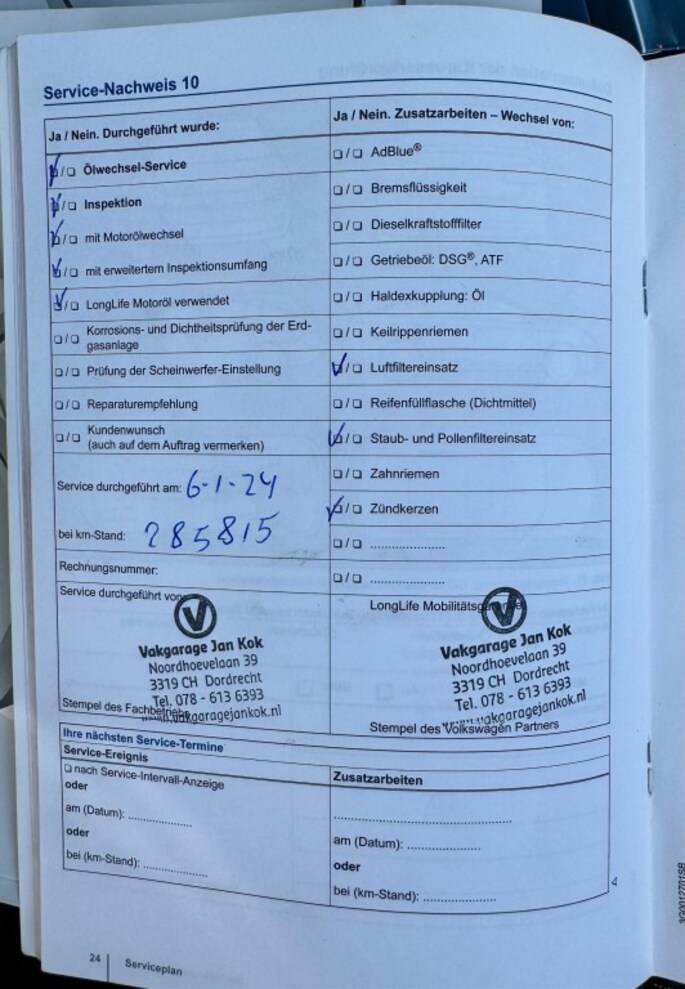 Service-Nachweis 10
Ja / Nein. Durchgeführt wurde:
☑/☐ Ölwechsel-Service
☑/☐ Inspektion
☑/☐ mit Motorölwechsel
☑/☐ mit erweitertem Inspektionsumfang
☑/☐ LongLife Motoröl verwendet
☐/☐ Korrosions- und Dichtheitsprüfung der Erd-
gasanlage
☐/☐ Prüfung der Scheinwerfer-Einstellung
☐/☐ Reparaturempfehlung
☐/☐ Kundenwunsch
(auch auf dem Auftrag vermerken)
Service durchgeführt am: 6-1-24
bei km-Stand: 285815
Rechnungsnummer:
Service durchgeführt von:
V
Vakgarage Jan Kok
Noordhoevelaan 39
3319 CH Dordrecht
Tel. 078 - 613 6393
www.vakgaragejankok.nl
Stempel des Fachbetriebs
Ja / Nein. Zusatzarbeiten – Wechsel von:
☐/☐ AdBlue®
☐/☐ Bremsflüssigkeit
☐/☐ Dieselkraftstofffilter
☐/☐ Getriebeöl: DSG®, ATF
☐/☐ Haldexkupplung: Öl
☐/☐ Keilrippenriemen
☑/☐ Luftfiltereinsatz
☐/☐ Reifenfüllflasche (Dichtmittel)
☑/☐ Staub- und Pollenfiltereinsatz
☐/☐ Zahnriemen
☑/☐ Zündkerzen
☐/☐ .....................
☐/☐ .....................
LongLife Mobilitätsgarantie
V
Vakgarage Jan Kok
Noordhoevelaan 39
3319 CH Dordrecht
Tel. 078 - 613 6393
www.vakgaragejankok.nl
Stempel des Volkswagen Partners
Ihre nächsten Service-Termine
Service-Ereignis
☐ nach Service-Intervall-Anzeige
oder
am (Datum): ..................
oder
bei (km-Stand): ..................
Zusatzarbeiten
..................................................
am (Datum): .....................
oder
bei (km-Stand): .....................
24
Serviceplan
3G0012701SB